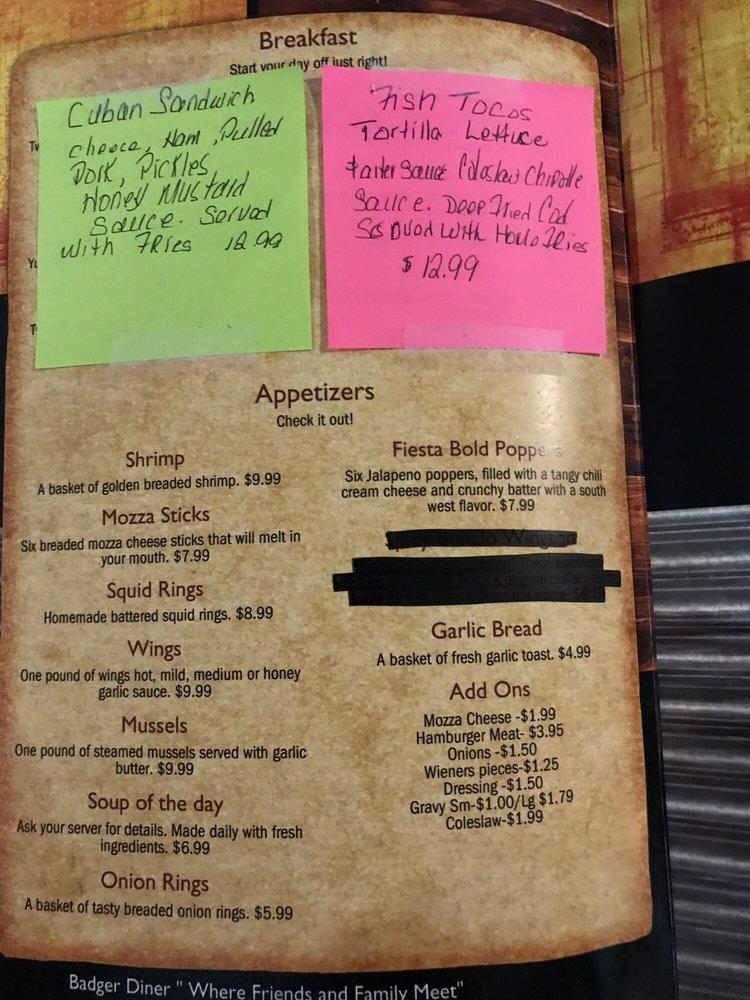 Breakfast
Start your day off just right!
Cuban Sandwich
cheece, Ham, Pulled
Pork, Pickles
Honey Mustard
Sauce. Served
with FRies 12.99
Fish Tocos
Tortilla Lettuce
Sauce Coloslaw Chipotle
Sauce. Deep Fried Cod
With Home FRies
$12.99
Appetizers
Check it out!
Shrimp
A basket of golden breaded shrimp. $9.99
Mozza Sticks
Six breaded mozza cheese sticks that will melt in
your mouth. $7.99
Squid Rings
Homemade battered squid rings. $8.99
Wings
One pound of wings hot, mild, medium or honey
garlic sauce. $9.99
Mussels
One pound of steamed mussels served with garlic
butter. $9.99
Soup of the day
Ask your server for details. Made daily with fresh
ingredients. $6.99
Onion Rings
A basket of tasty breaded onion rings. $5.99
Fiesta Bold Poppers
Six Jalapeno poppers, filled with a tangy chili
cream cheese and crunchy batter with a south
west flavor. $7.99
Garlic Bread
A basket of fresh garlic toast. $4.99
Add Ons
Mozza Cheese -$1.99
Hamburger Meat- $3.95
Onions -$1.50
Wieners pieces-$1.25
Dressing -$1.50
Gravy Sm-$1.00/Lg $1.79
Coleslaw-$1.99
Badger Diner " Where Friends and Family Meet"